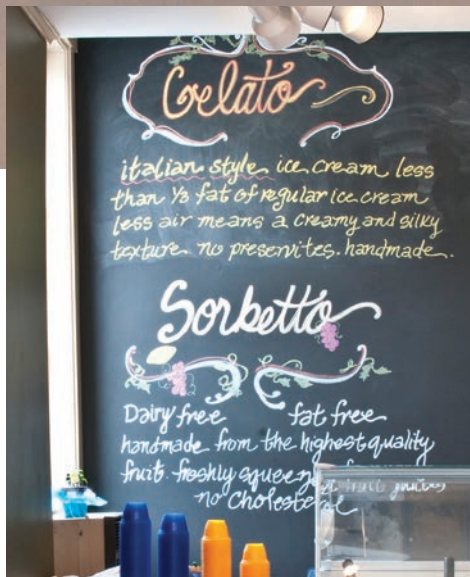 Gelato
italian style ice cream less
than 1/3 fat of regular ice cream
less air means a creamy and silky
texture. no preservites. handmade.
Sorbetto
Dairy free fat free
handmade from the highest quality
fruit. freshly fruit juices
no cholesterol